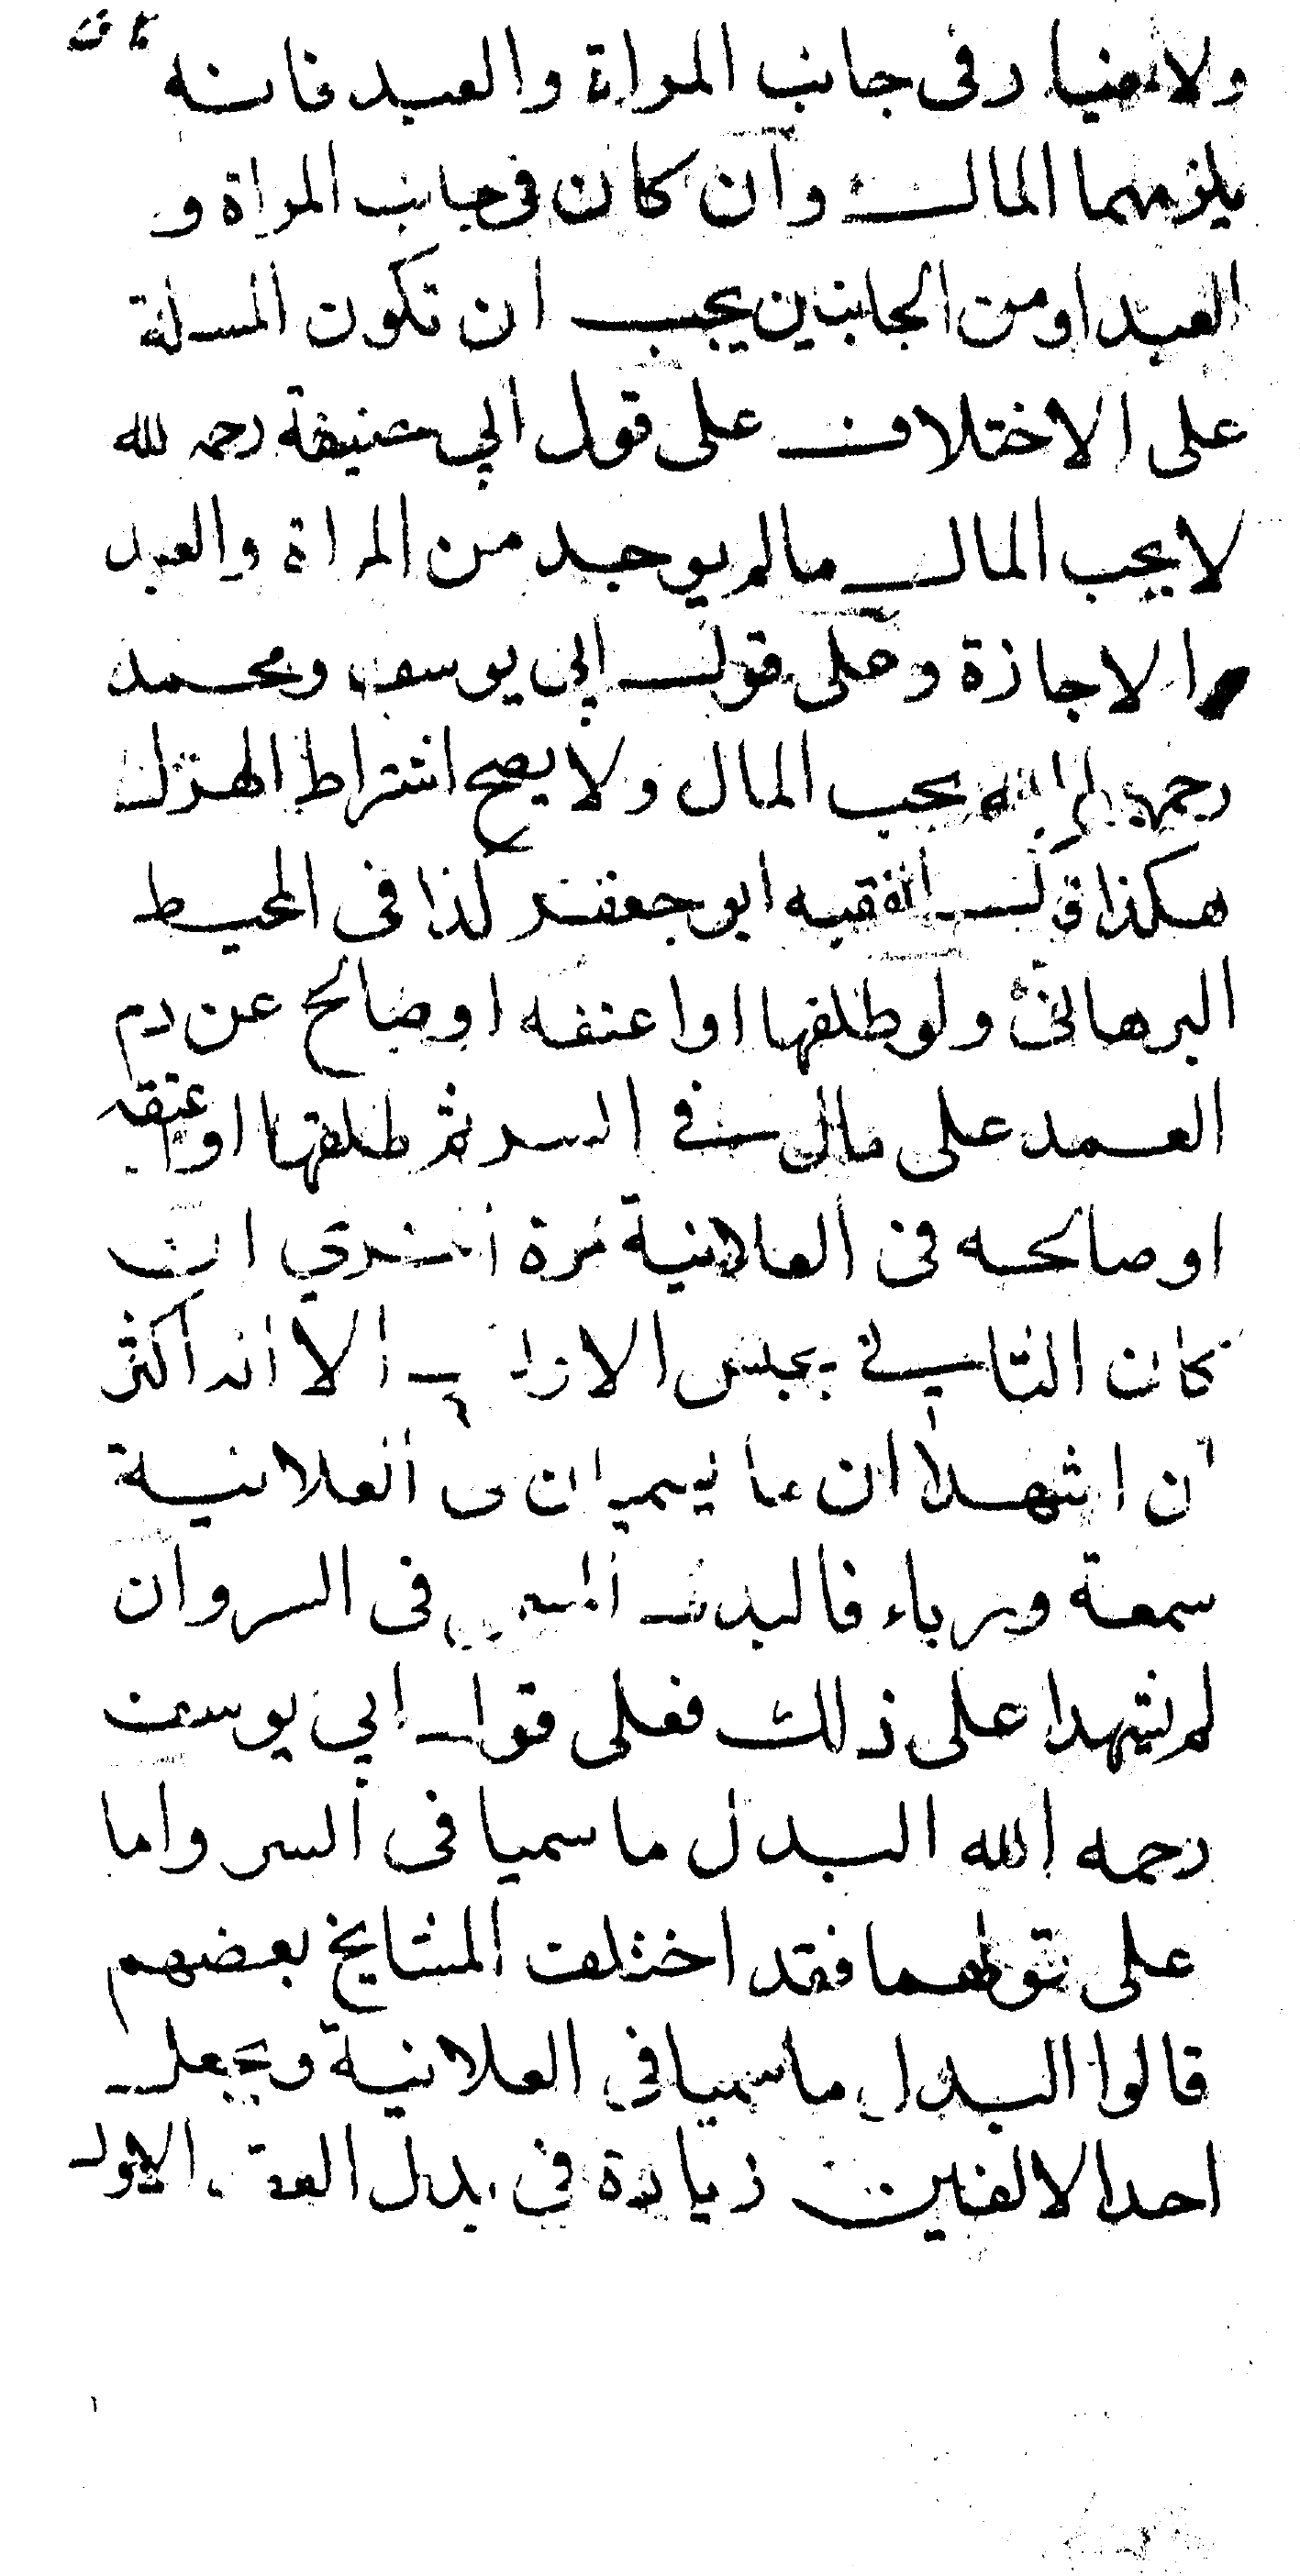 ولا خيار فى جانب المراة والعبد فانه
يلزمهما المال وان كان فى جانب المراة و
العبد او من الجانبين يجب ان تكون المسالة
على الاختلاف على قول ابي حنيفة رحمه لله
لا يجب المال مالم يوجد من المراة والعبد
الاجازة وعلى قول ابى يوسف ومحمد
رحمهما الله يجب المال ولا يصح اشتراط الهزل
هكذا قال الفقيه ابو جعفر كذا فى المحيط
البرهانى ولو طلقها او اعتقه او صالح عن دم
العمد على مال فى السر ثم طلقها او اعتقه
او صالحه فى العلانية مرة اخرى ان
كان الثانى بجنس الاول الا انه اكثر
ان اشهدا ان ما يسميان فى العلانية
سمعة ورياء فالبدل المسمى فى السر وان
لم يشهدا على ذلك فعلى قول ابي يوسف
رحمه الله البدل ما سميا فى السر واما
على قولهما فقد اختلف المشايخ بعضهم
قالوا البدل ما سميا فى العلانية ويجعل
احد الالفين زيادة فى بدل العقد الاول